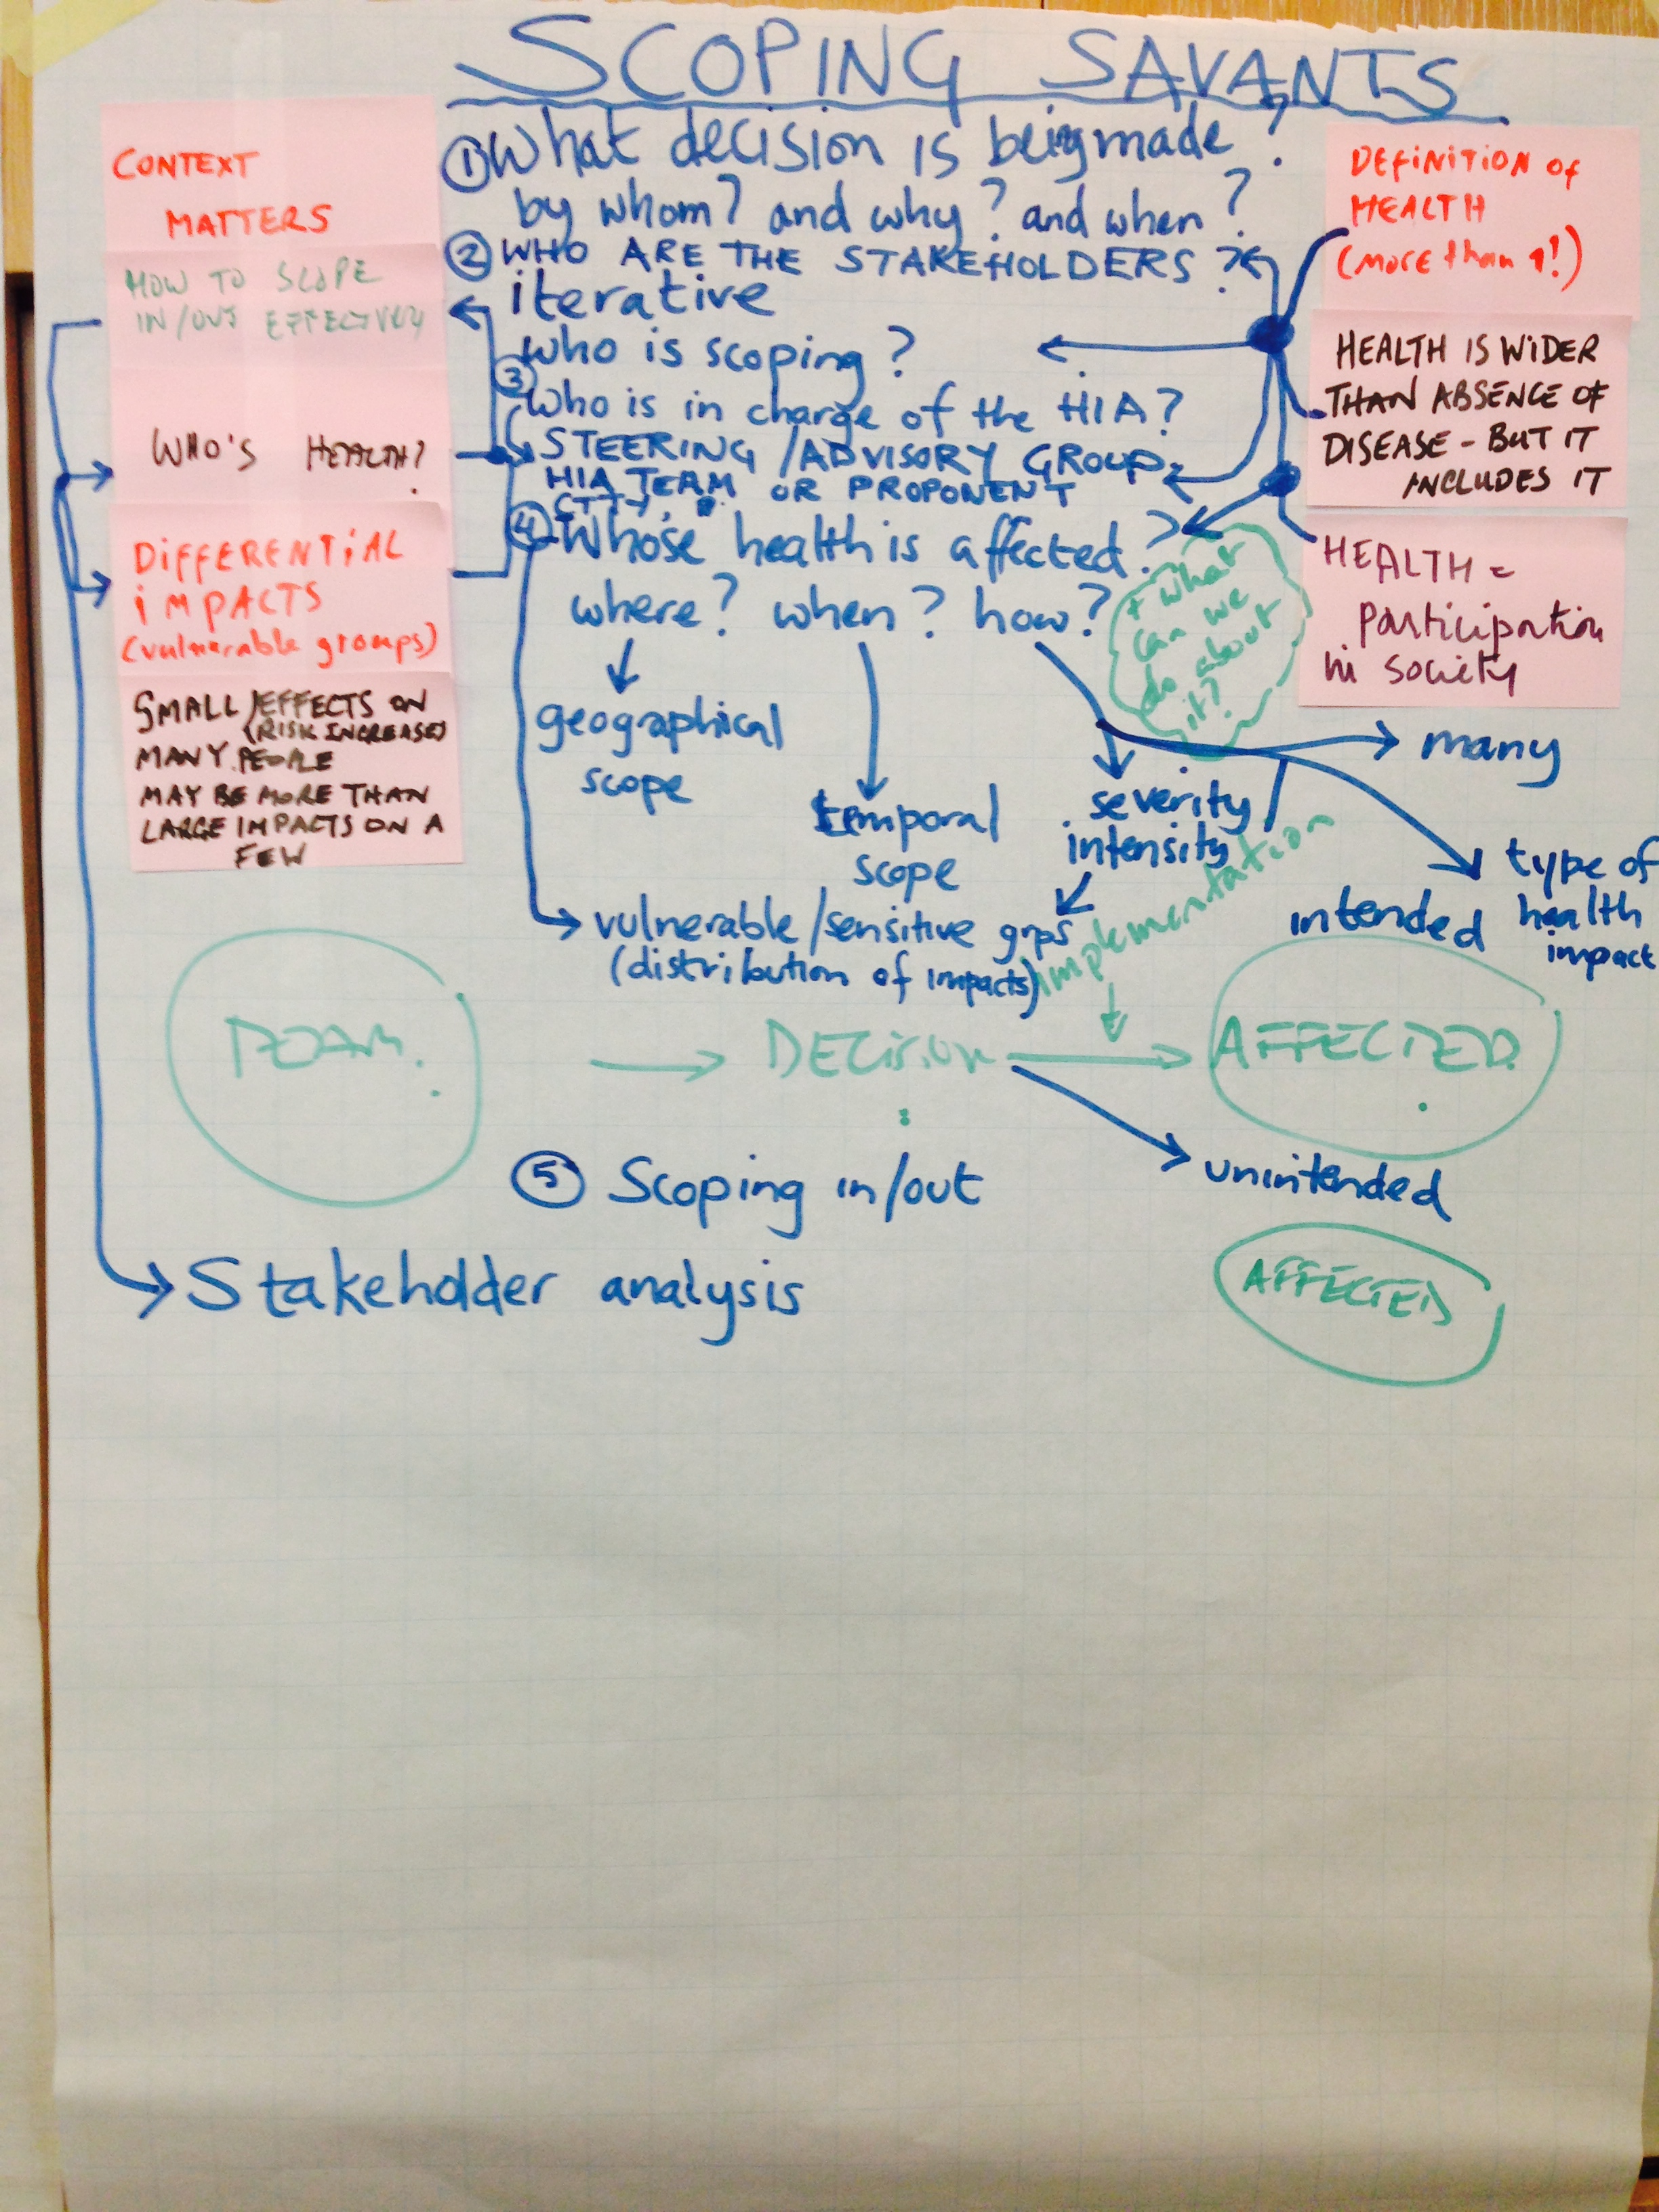 SCOPING SAVANTS
① What decision is being made?
by whom? and why? and when?
② WHO ARE THE STAKEHOLDERS?
iterative
who is scoping?
③
Who is in charge of the HIA?
STEERING / ADVISORY GROUP
HIA TEAM OR PROPONENT
④ Whose health is affected?
where? when? how?
+ what
can we
do about
it?
geographical
scope
temporal
scope
severity
intensity
many
type of
health
impact
intended
vulnerable/sensitive grps
(distribution of impacts)
implementation
CONTEXT
MATTERS
HOW TO SCOPE
IN/OUT EFFECTIVELY
WHO'S HEALTH?
DIFFERENTIAL
IMPACTS
(vulnerable groups)
SMALL EFFECTS ON
(RISK INCREASES)
MANY PEOPLE
MAY BE MORE THAN
LARGE IMPACTS ON A
FEW
DEFINITION OF
HEALTH
(more than 1!)
HEALTH IS WIDER
THAN ABSENCE OF
DISEASE - BUT IT
INCLUDES IT
HEALTH =
participation
in society
DECISION
AFFECTED
⑤ Scoping in/out
unintended
Stakeholder analysis
AFFECTED